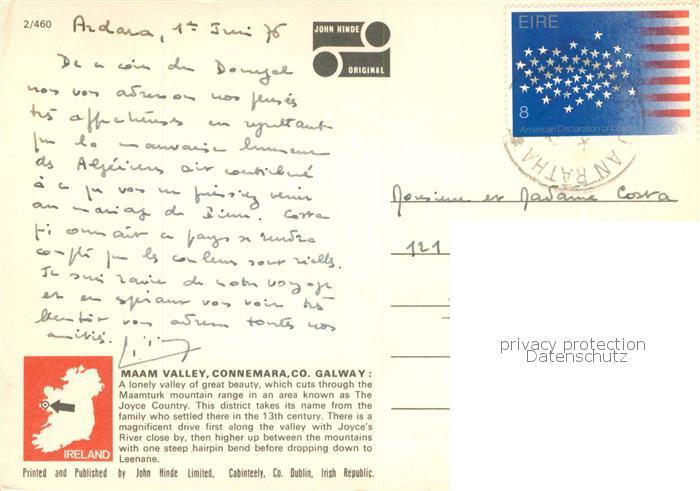 2/460
Ardara, 1er Juin 76
JOHN HINDE
ORIGINAL
EIRE
8
American Declaration of
AN RATHA
De ce coin du Donegal
nous vous adressons nos pensées
très affectueuses en regrettant
que la mauvaise humeur
des Algériens ait contribué
à ce que vous ne puissiez venir
au mariage de Costa
qui connait ce pays se rendra
compte que les couleurs sont réelles.
Je suis ravie de notre voyage
et en espérant vous voir très
bientôt vous adresse toutes nos
amitiés.
Monsieur et Madame Costa
121
privacy protection
Datenschutz
IRELAND
MAAM VALLEY, CONNEMARA, CO. GALWAY:
A lonely valley of great beauty, which cuts through the
Maamturk mountain range in an area known as The
Joyce Country. This district takes its name from the
family who settled there in the 13th century. There is a
magnificent drive first along the valley with Joyce's
River close by, then higher up between the mountains
with one steep hairpin bend before dropping down to
Leenane.
Printed and Published by John Hinde Limited, Cabinteely, Co. Dublin, Irish Republic.